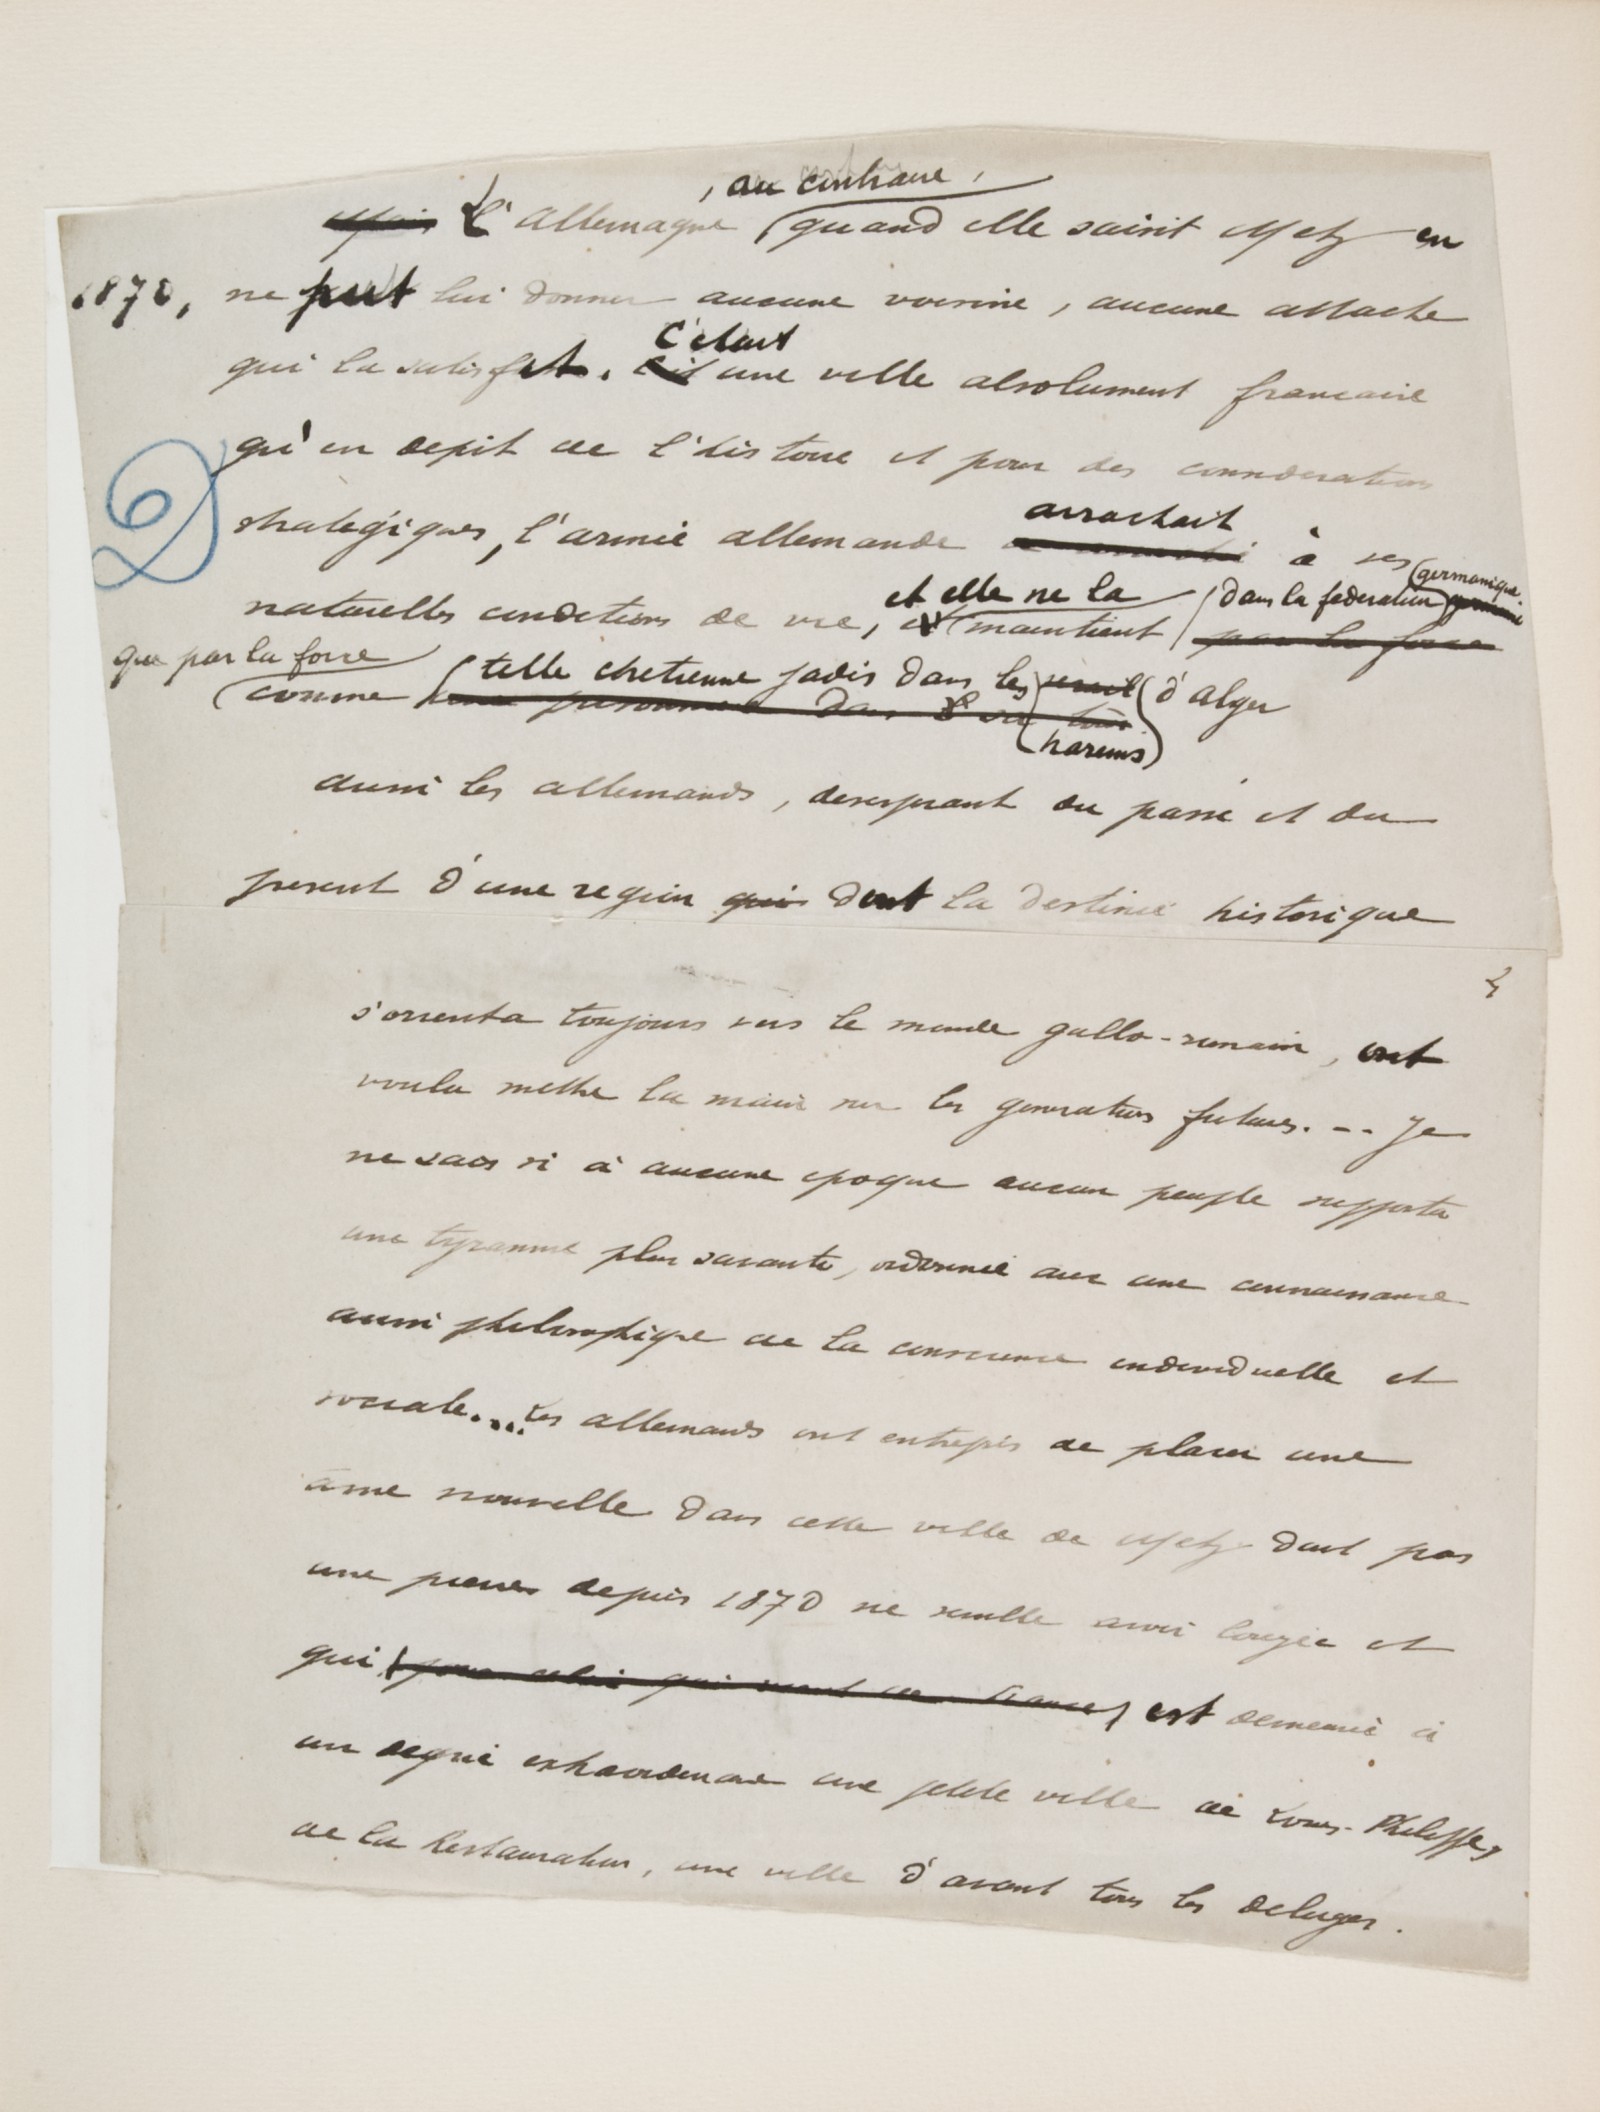 , au contraire,
Mais L'Allemagne quand elle saisit Metz en
1870, ne put lui donner aucune voisine, aucune attache
qui la satisfit. C'était une ville absolument française
qu'en depit de l'histoire et pour des considerations
strategiques, l'armée allemande arrachait à ses
germanique.
naturelles conditions de vie, et elle ne la maintient dans la federation par la force
que par la force
comme telle chretienne jadis dans les serail d'Alger
une personne dans
harems
aussi les allemands, desesperant du passé et du
present d'une region qui dont la destinée historique
s'orienta toujours vers le monde gallo-romain, ont
voulu mettre la main sur les generations futures. -- Je
ne sais si à aucune epoque aucun peuple supporta
une tyrannie plus savante, ordonnée avec une connaissance
aussi philosophique de la conscience individuelle et
sociale.... Les allemands ont entrepris de placer une
âme nouvelle dans cette ville de Metz dont pas
une pierre depuis 1870 ne semble avoir bougée et
qui (pour celui qui vient de France) est demeuré à
un degré extraordinaire une petite ville de Louis-Philippe,
de la Restauration, une ville d'avant tous les deluges.